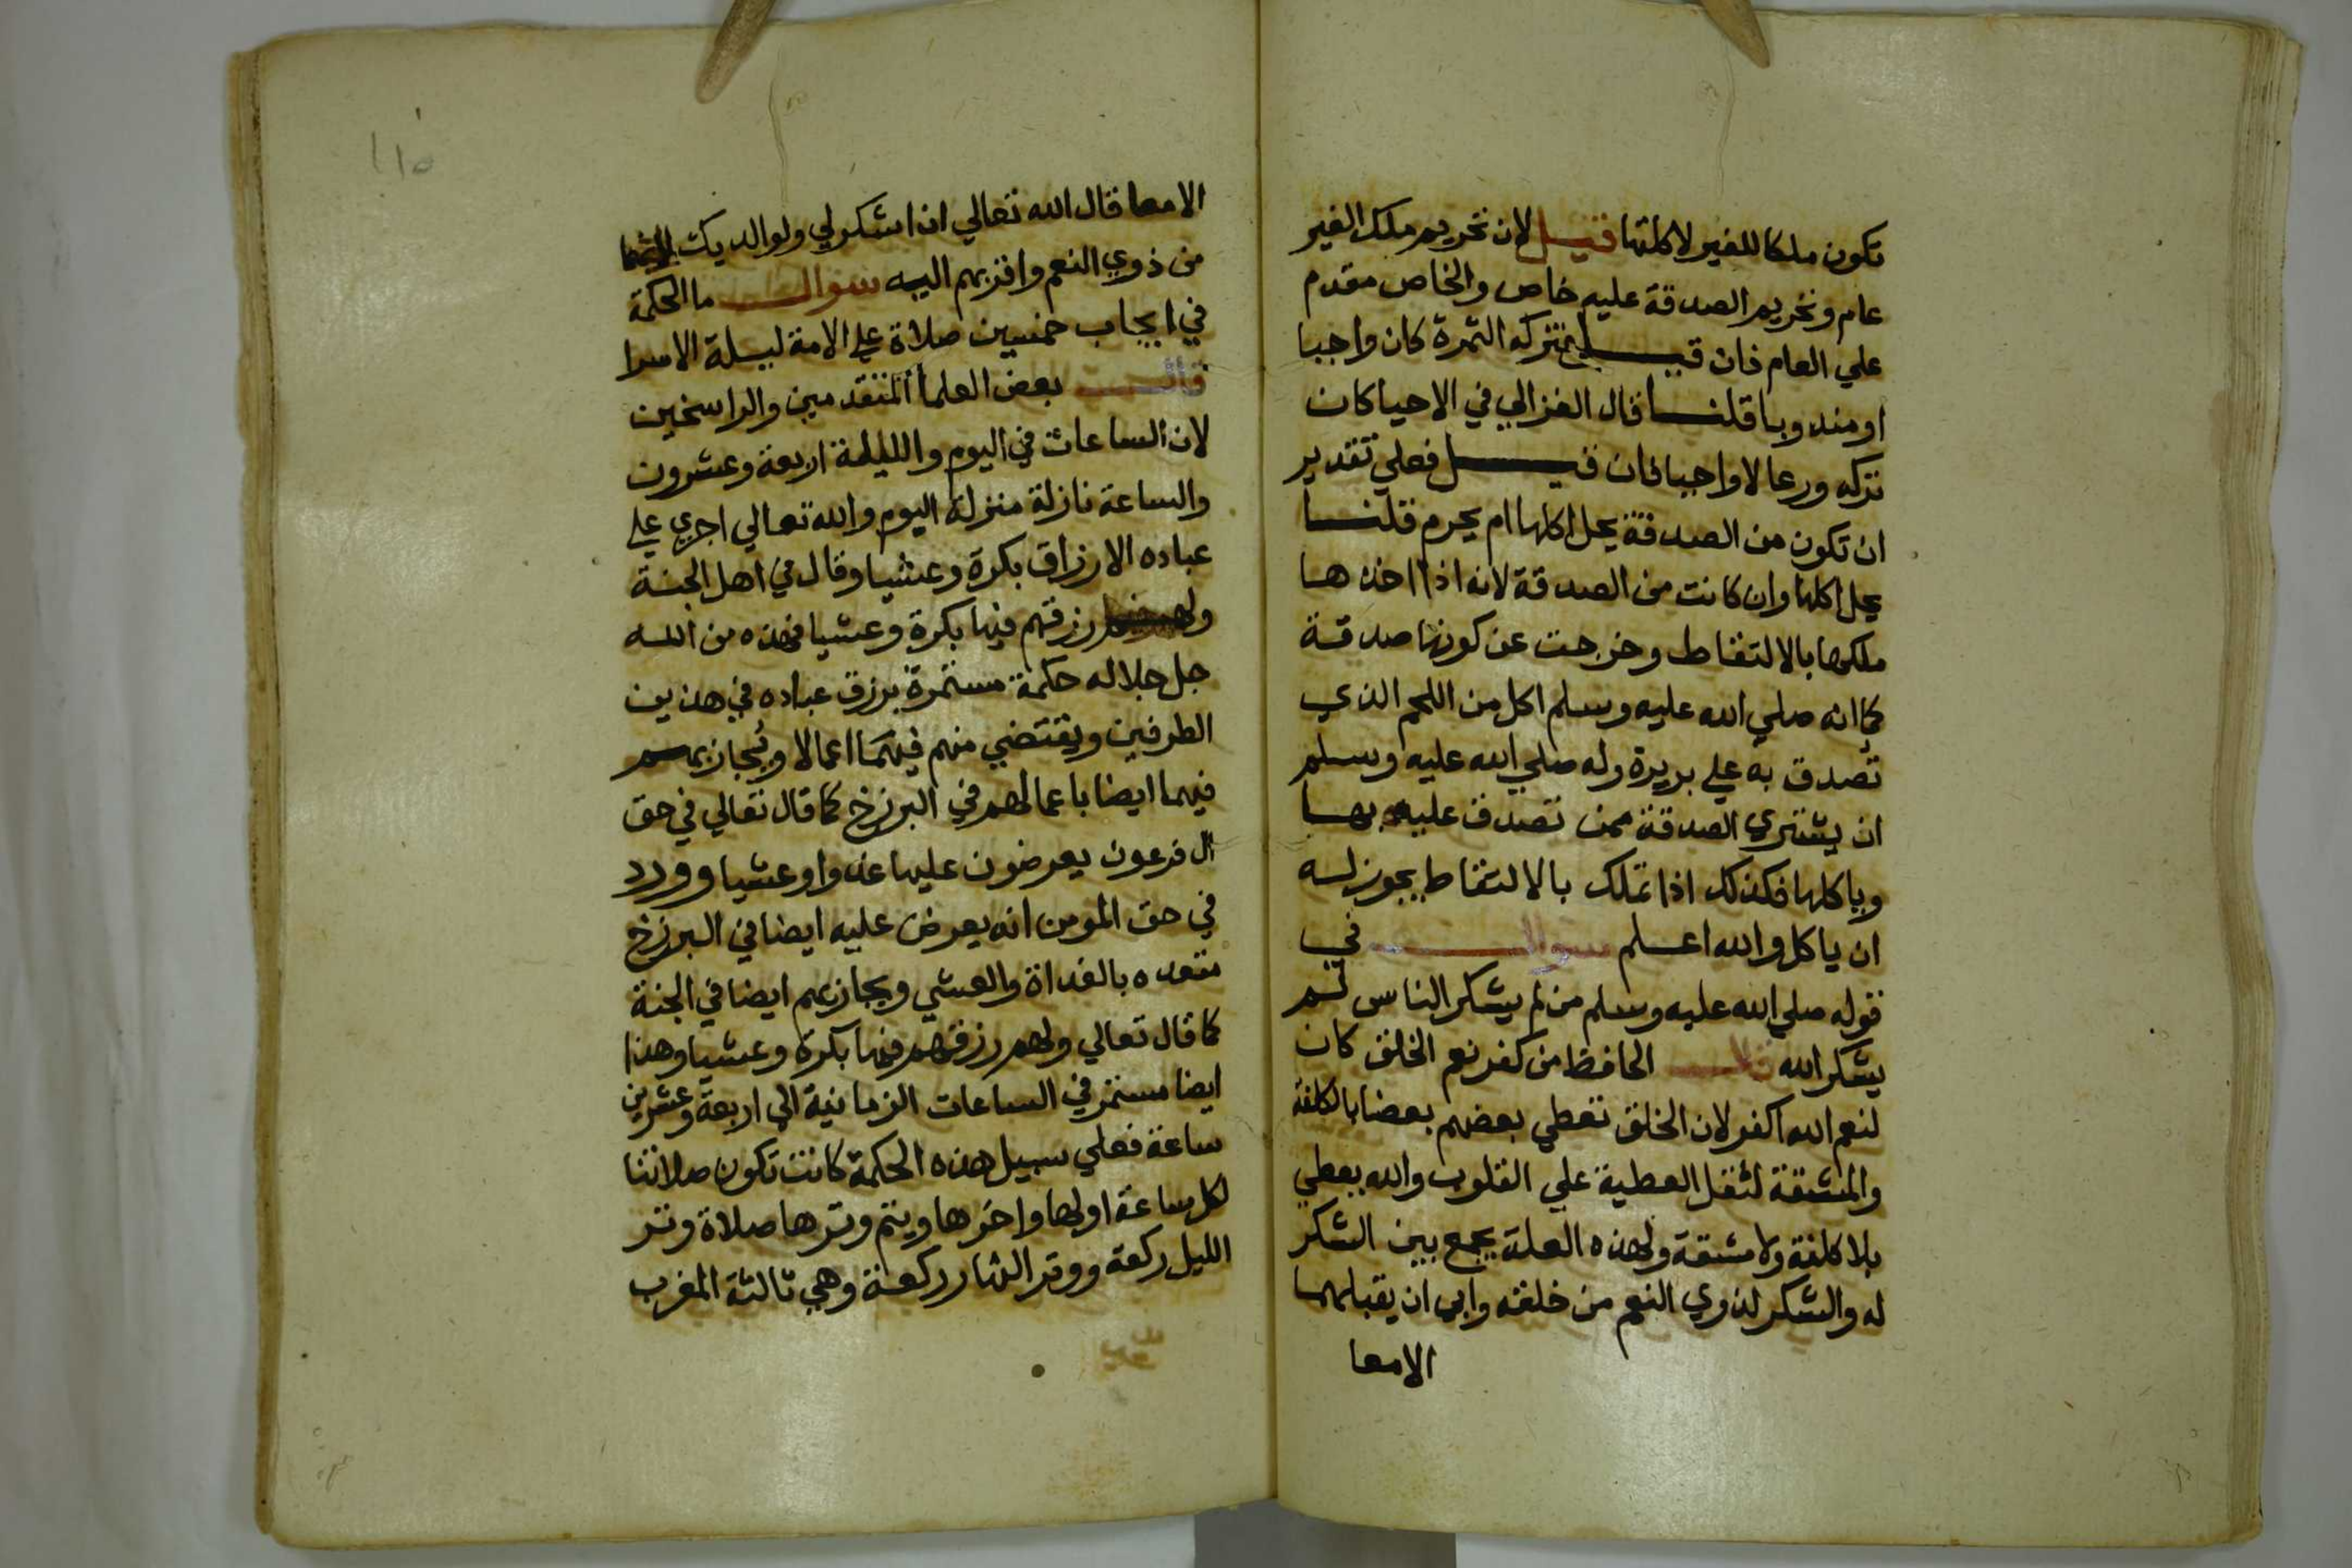 تكون ملكا للغير لاكلتها قيل لان تحريم ملك الغير
عام وتحريم الصدقة عليه خاص والخاص مقدم
علي العام فان قيل تركه التمرة كان واجبا
او مندوبا قلنا قال الغزالي في الاحيا كان
تركه ورعا لا واجبا فان قيل فعلي تقدير
ان تكون من الصدقة يحل اكلها ام يحرم قلنا
يحل اكلها وان كانت من الصدقة لانه اذا اخذها
ملكها بالالتقاط وخرجت عن كونها صدقة
كما انه صلي الله عليه وسلم اكل من اللحم الذي
تُصدق به علي بريرة وله صلي الله عليه وسلم
ان يشتري الصدقة ممن تصدق عليه بها
وياكلها فكذلك اذا تملك بالالتقاط يجوز له
ان ياكل والله اعلم سوال في
قوله صلي الله عليه وسلم من لم يشكر الناس لم
يشكر الله قال الحافظ من كفر نعم الخلق كان
لنعم الله اكفر لان الخلق تعطي بعضهم بعضا بالكلفة
والمشقة لثقل العطية علي القلوب والله يعطي
بلا كلفة ولا مشقة ولهذه العلة يجمع بين الشكر
له والشكر لذوي النعم من خلقه وابي ان يقبلهما
الامعا
١١٥
الامعا قال الله تعالي ان اشكر لي ولوالديك
من ذوي النعم واقربهم اليه سوال ما الحكمة
في ايجاب خمسين صلاة علي الامة ليلة الاسرا
قال بعض العلما المتقدمين والراسخين
لان الساعات في اليوم والليلة اربعة وعشرون
والساعة نازلة منزلة اليوم والله تعالي اجري علي
عباده الارزاق بكرة وعشيا وقال في اهل الجنة
ولهم رزقهم فيها بكرة وعشيا فهذه من الله
جل جلاله حكمة مستمرة يرزق عباده في هذين
الطرفين ويقتضي منهم فيهما اعمالا ويُجازيهم
فيهما ايضا باعمالهم في البرزخ كما قال تعالي في حق
ال فرعون يعرضون عليها غدوا وعشيا وورد
في حق المومن انه يعرض عليه ايضا في البرزخ
مقعده بالغداة والعشي ويجازيهم ايضا في الجنة
كما قال تعالي ولهم رزقهم فيها بكرة وعشيا وهذا
ايضا مستمر في الساعات الزمانية الي اربعة وعشرين
ساعة فعلي سبيل هذه الحكمة كانت تكون صلاتنا
لكل ساعة اولها واخرها ويتم وترها صلاة وتر
الليل ركعة ووتر النهار ركعة وهي ثالثة المغرب